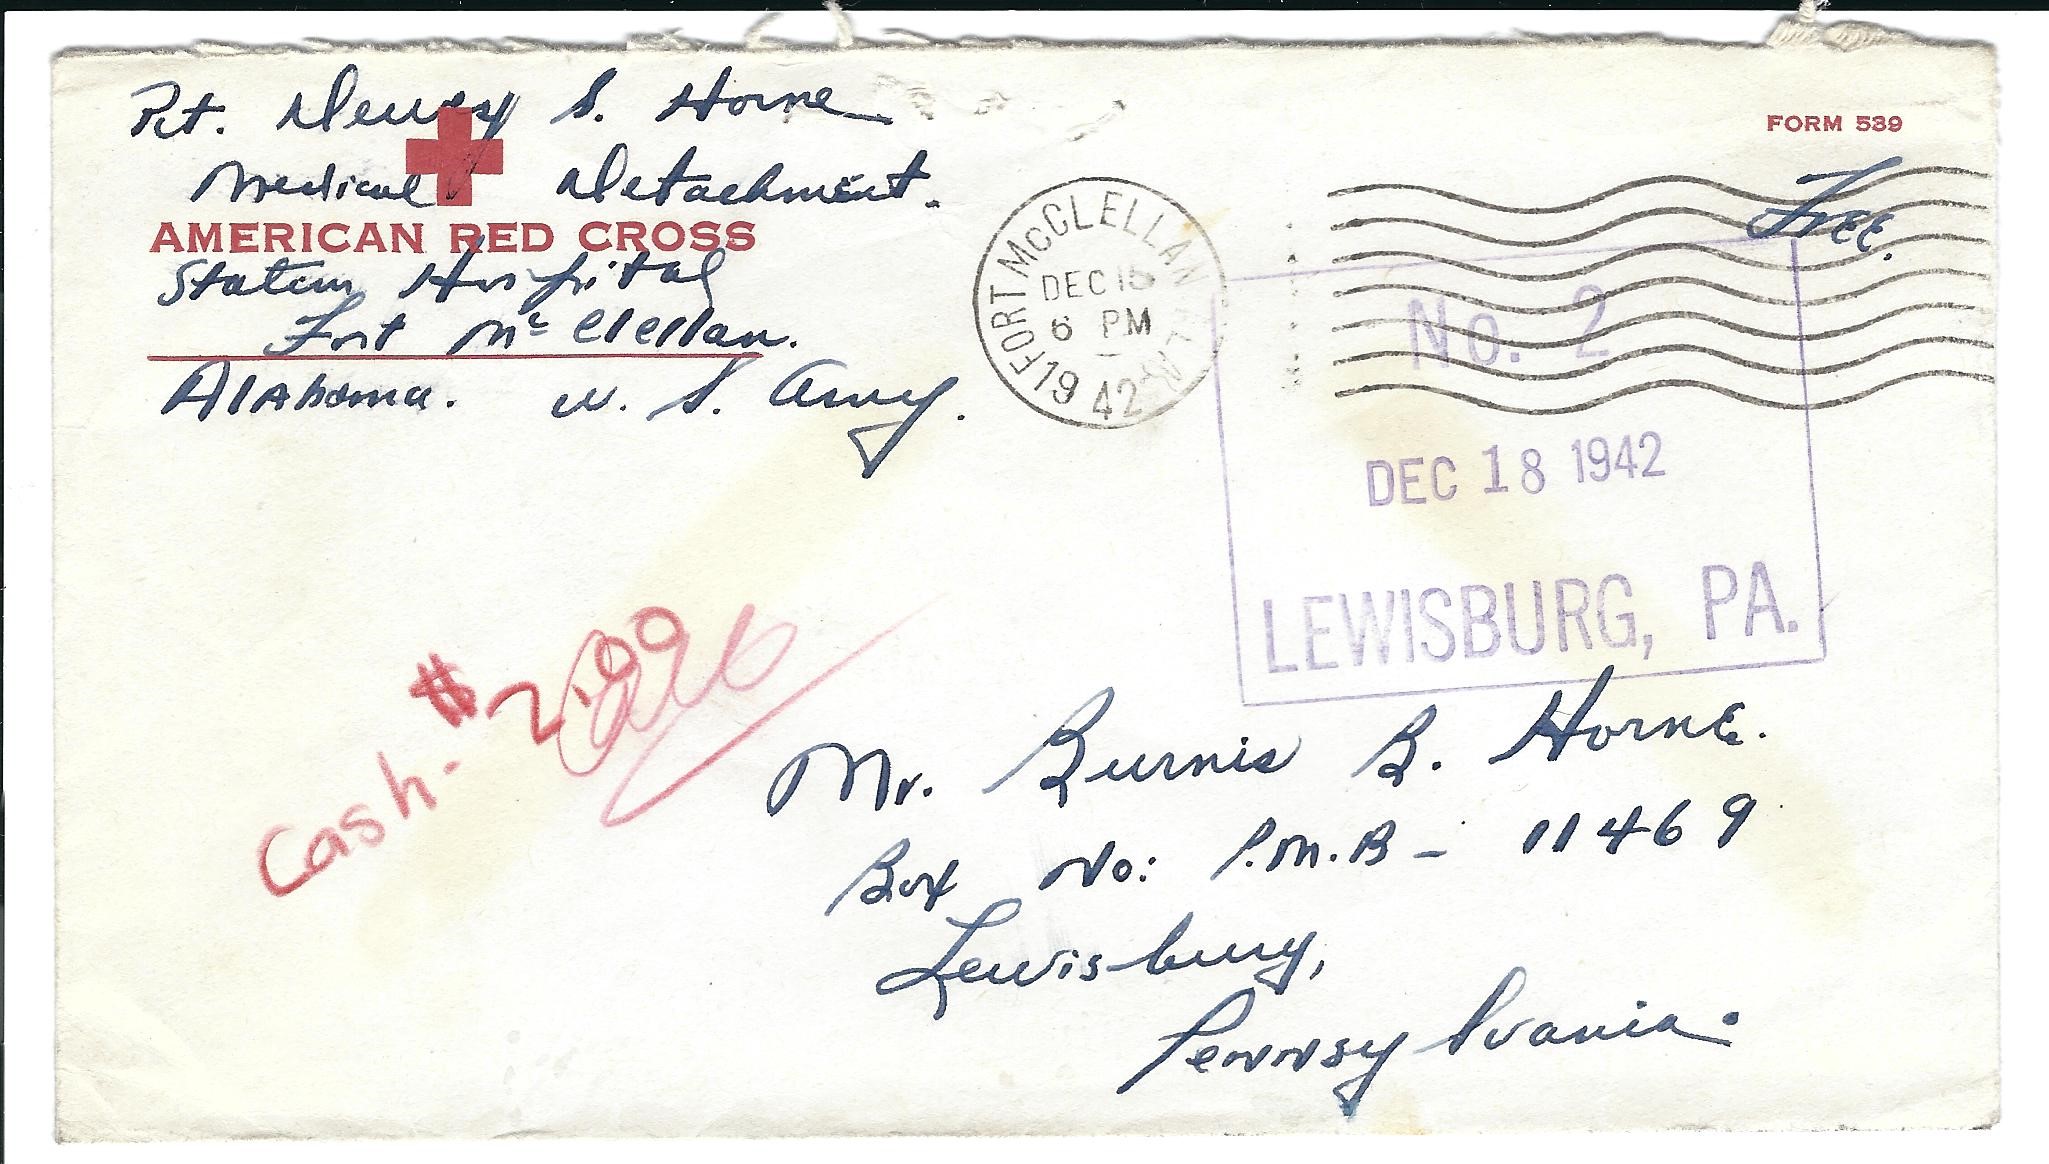 Pvt. Dewey S. Horne
Medical Detachment.
AMERICAN RED CROSS
Station Hospital
Fort Mc Clellan.
Alabama. U. S. Army.
FORM 539
Free.
FORT McCLELLAN ALA.
DEC 15
6 PM
1942
No. 2
DEC 18 1942
LEWISBURG, PA.
Cash - $2.00
Mr. Burnis B. Horne.
Box No: P.M.B - 11469
Lewisburg,
Pennsylvania.